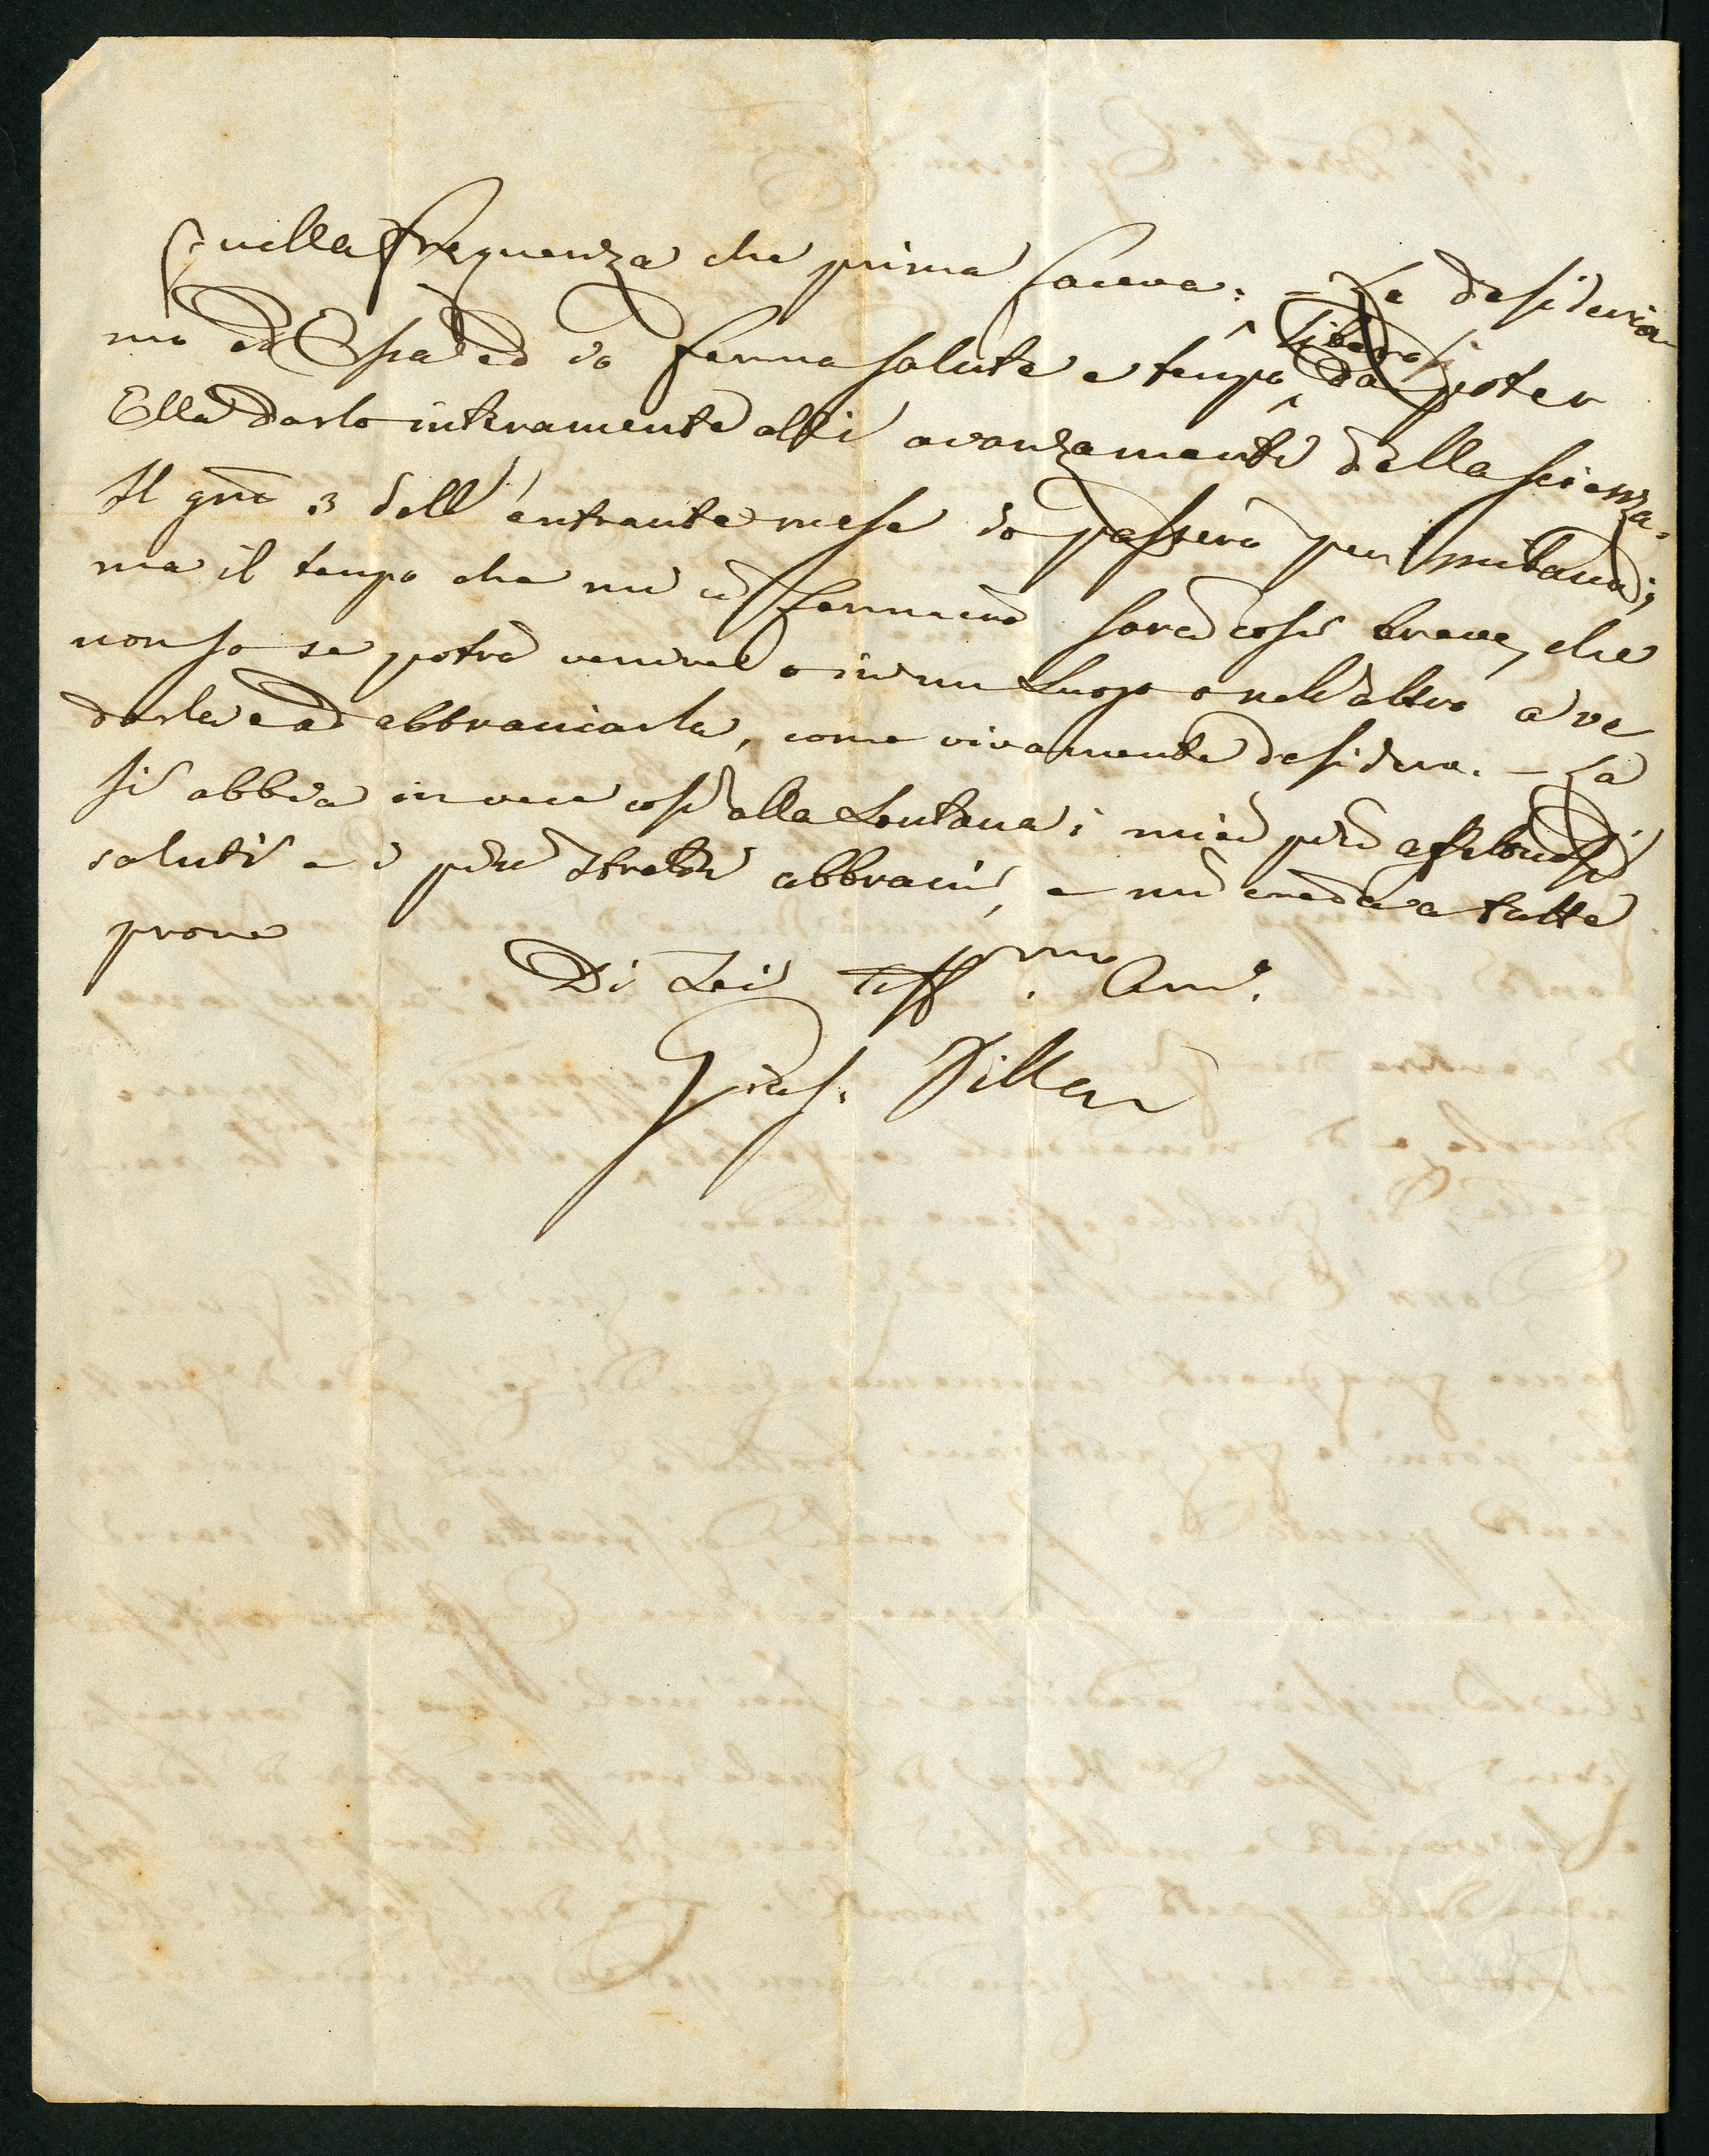 quella frequenza che prima faceva: – Le desideria-
mo ed Essa ed io ferma salute e tempo libero da poter
Ella darlo interamente alli avanzamenti della scienza.
Il gno 3 dell'entrante mese io passerò per Milano;
ma il tempo che mi ci fermerò sarà così breve, che
non so se potrò venire o in un Luogo o nell'altro a ve
derla e ad abbracciarla, come vivamente desidero. – La
si abbia invece così alla Lontana i miei più affettuosi
saluti e i più stretti abbracci, e mi creda a tutte
prove
Di Lei Aff.mo Am.o
Gius.